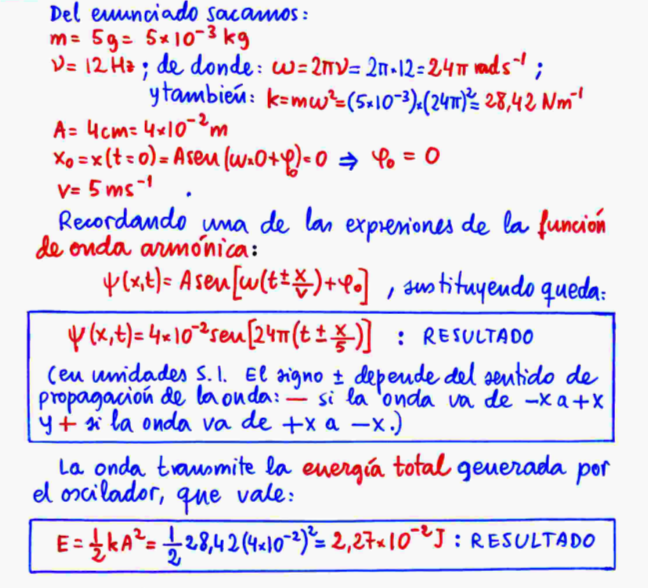 Del enunciado sacamos:
m= 5g= 5×10⁻³ kg
ν= 12 Hz ; de donde: ω=2πν= 2π·12= 24π rad s⁻¹ ;
y también: k=mω²=(5×10⁻³)×(24π)²= 28,42 Nm⁻¹
A= 4cm= 4×10⁻² m
x₀=x(t=0)=Asen(ω×0+φ₀)=0 ⇒ φ₀ = 0
v= 5 ms⁻¹ .
Recordando una de las expresiones de la función
de onda armónica:
ψ(x,t)= Asen[ω(t±x/v)+φ₀] , sustituyendo queda:
ψ(x,t)=4×10⁻²sen[24π(t±x/5)] : RESULTADO
(en unidades S.I. El signo ± depende del sentido de
propagación de la onda: — si la onda va de -x a +x
y + si la onda va de +x a -x.)
La onda transmite la energía total generada por
el oscilador, que vale:
E=1/2 kA²= 1/2 28,42(4×10⁻²)²= 2,27×10⁻² J : RESULTADO